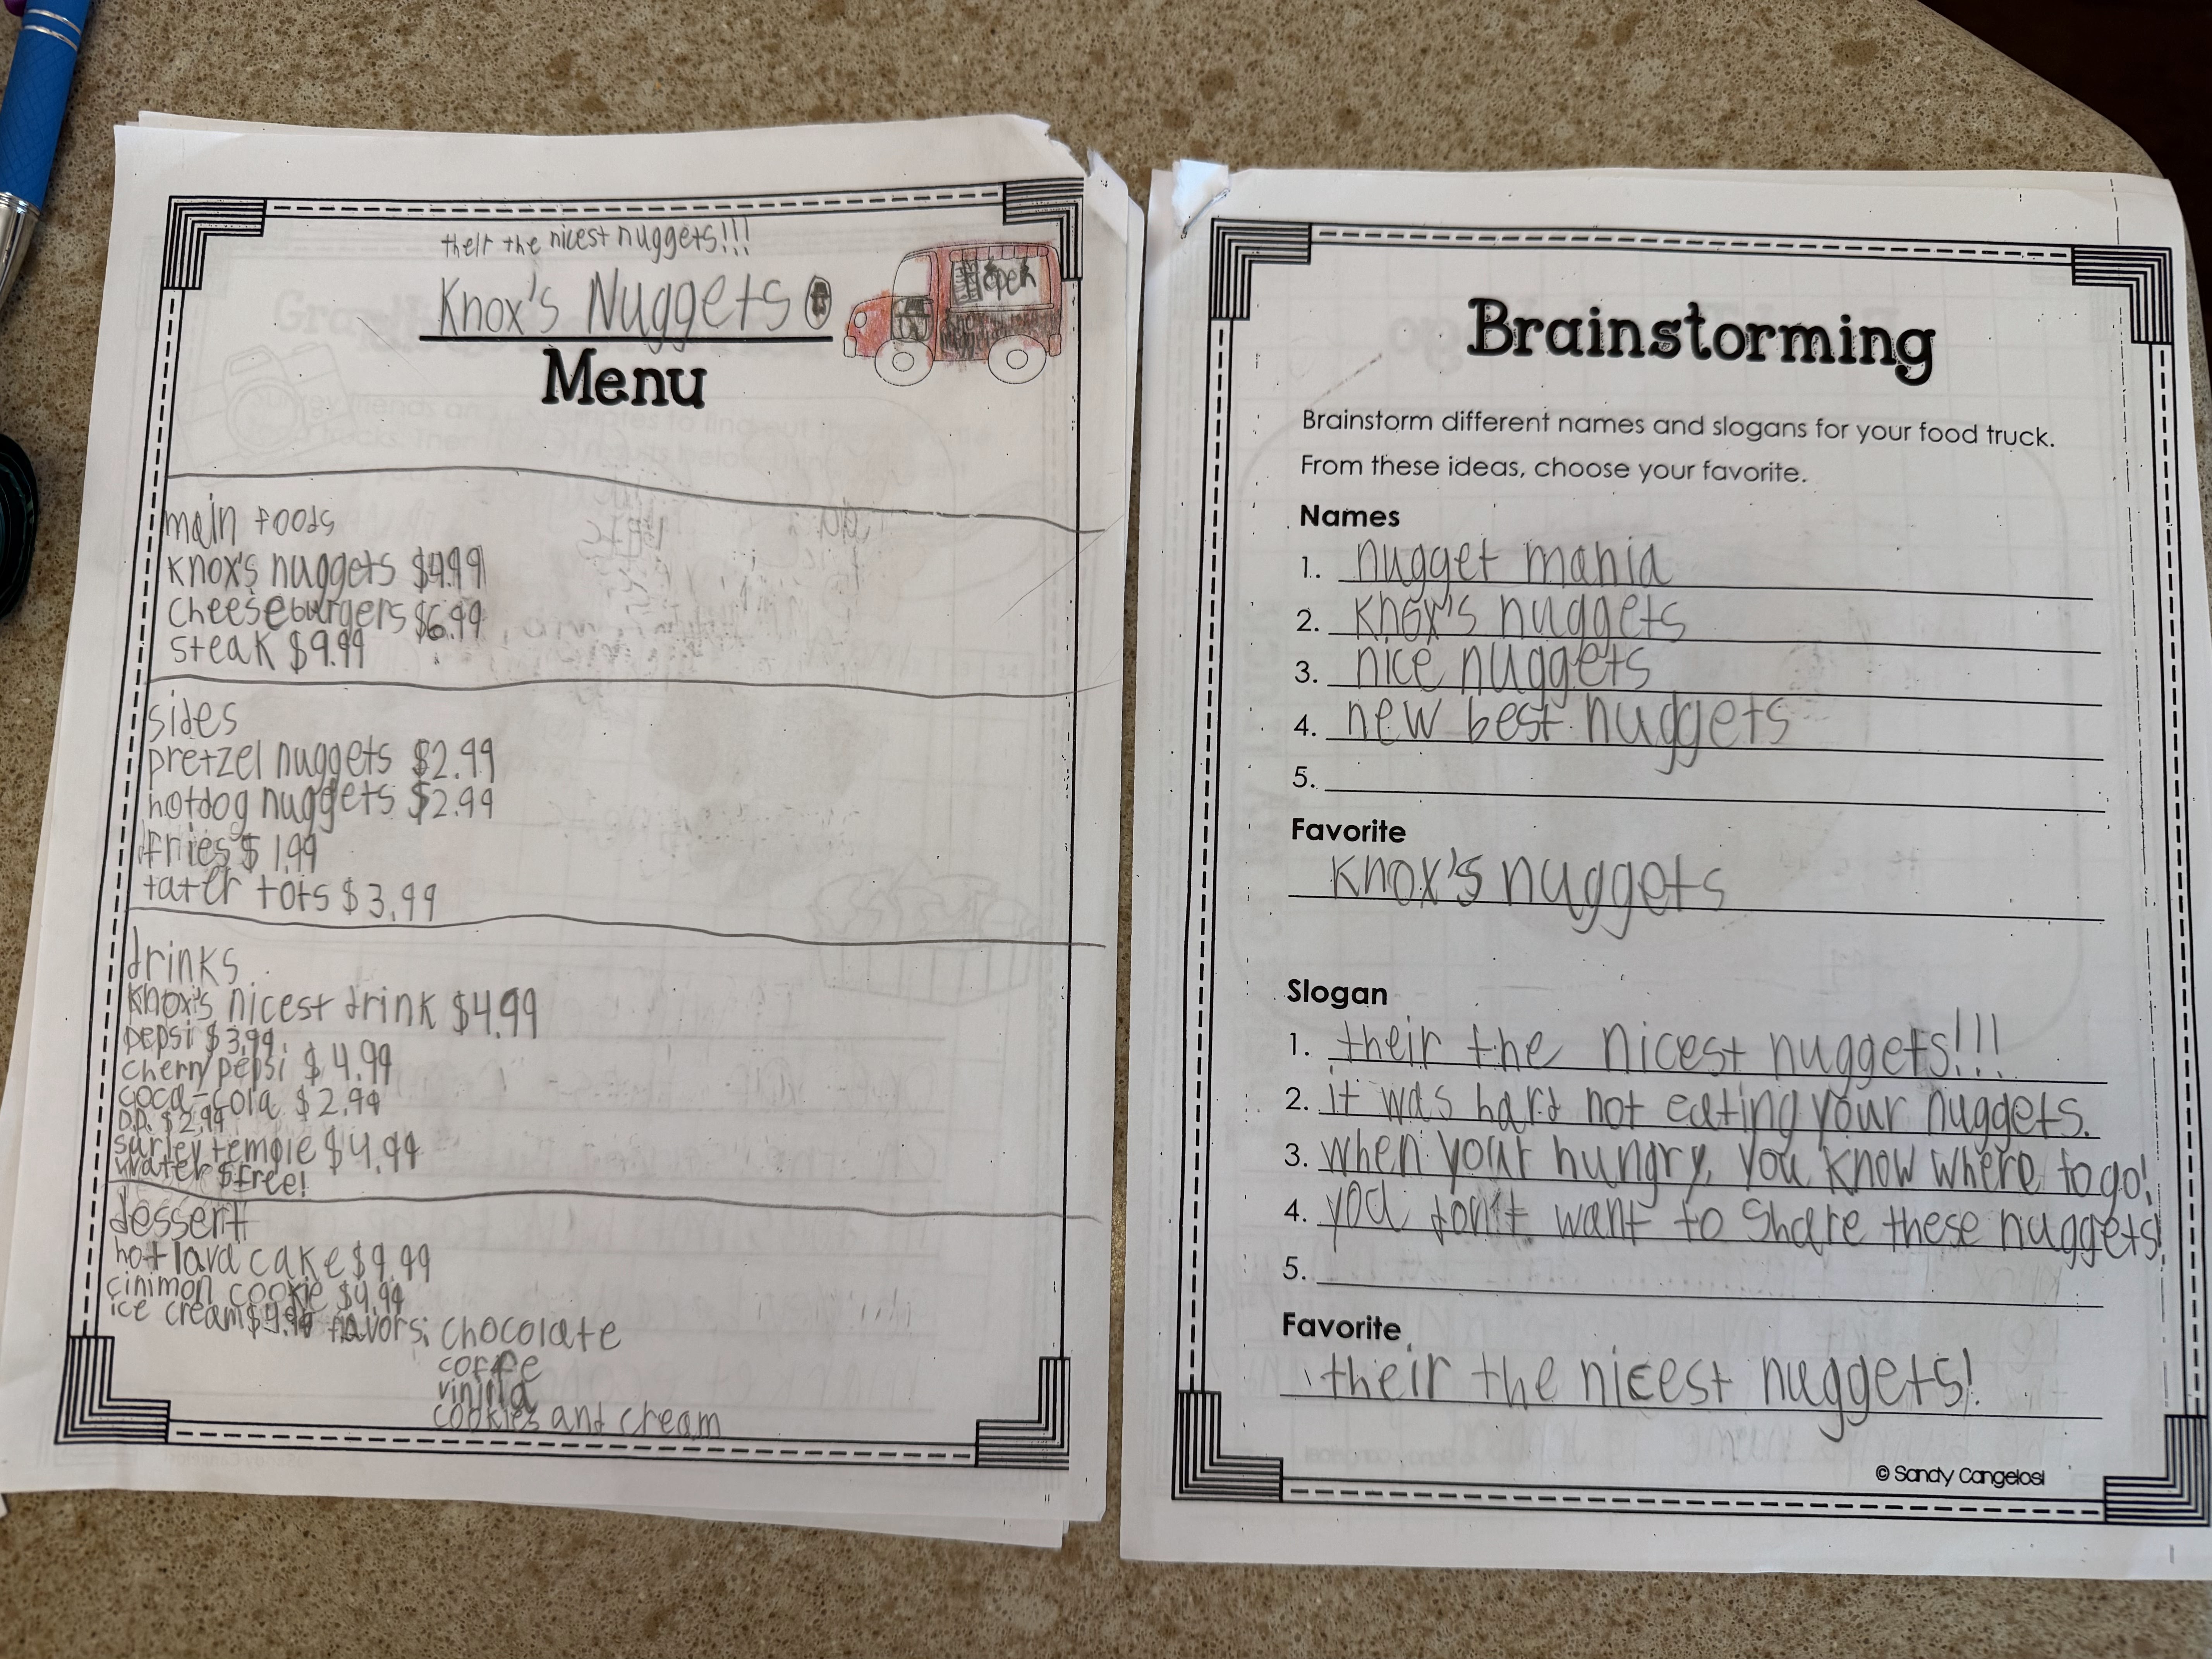 their the nicest nuggets!!!
Knox's Nuggets
open
Menu
main foods
Knox's nuggets $4.99
cheeseburgers $6.99
steak $9.99
sides
pretzel nuggets $2.99
hotdog nuggets $2.99
fries $1.99
tater tots $3.99
drinks
Knox's nicest drink $4.99
pepsi $3.99
cherry pepsi $4.99
coca-cola $2.99
D.P. $2.99
surley temple $4.99
water $free!
dessert
hot lava cake $9.99
cinimon cookie $4.99
ice cream flavors: chocolate
coffe
vinilla
cookies and cream
Brainstorming
Brainstorm different names and slogans for your food truck.
From these ideas, choose your favorite.
Names
1. nugget mania
2. Knox's nuggets
3. nice nuggets
4. new best nuggets
5.
Favorite
Knox's nuggets
Slogan
1. their the nicest nuggets!!!
2. it was hard not eating your nuggets.
3. when your hungry, you know where to go!
4. you don't want to share these nuggets!
5.
Favorite
their the nicest nuggets!
© Sandy Cangelosi